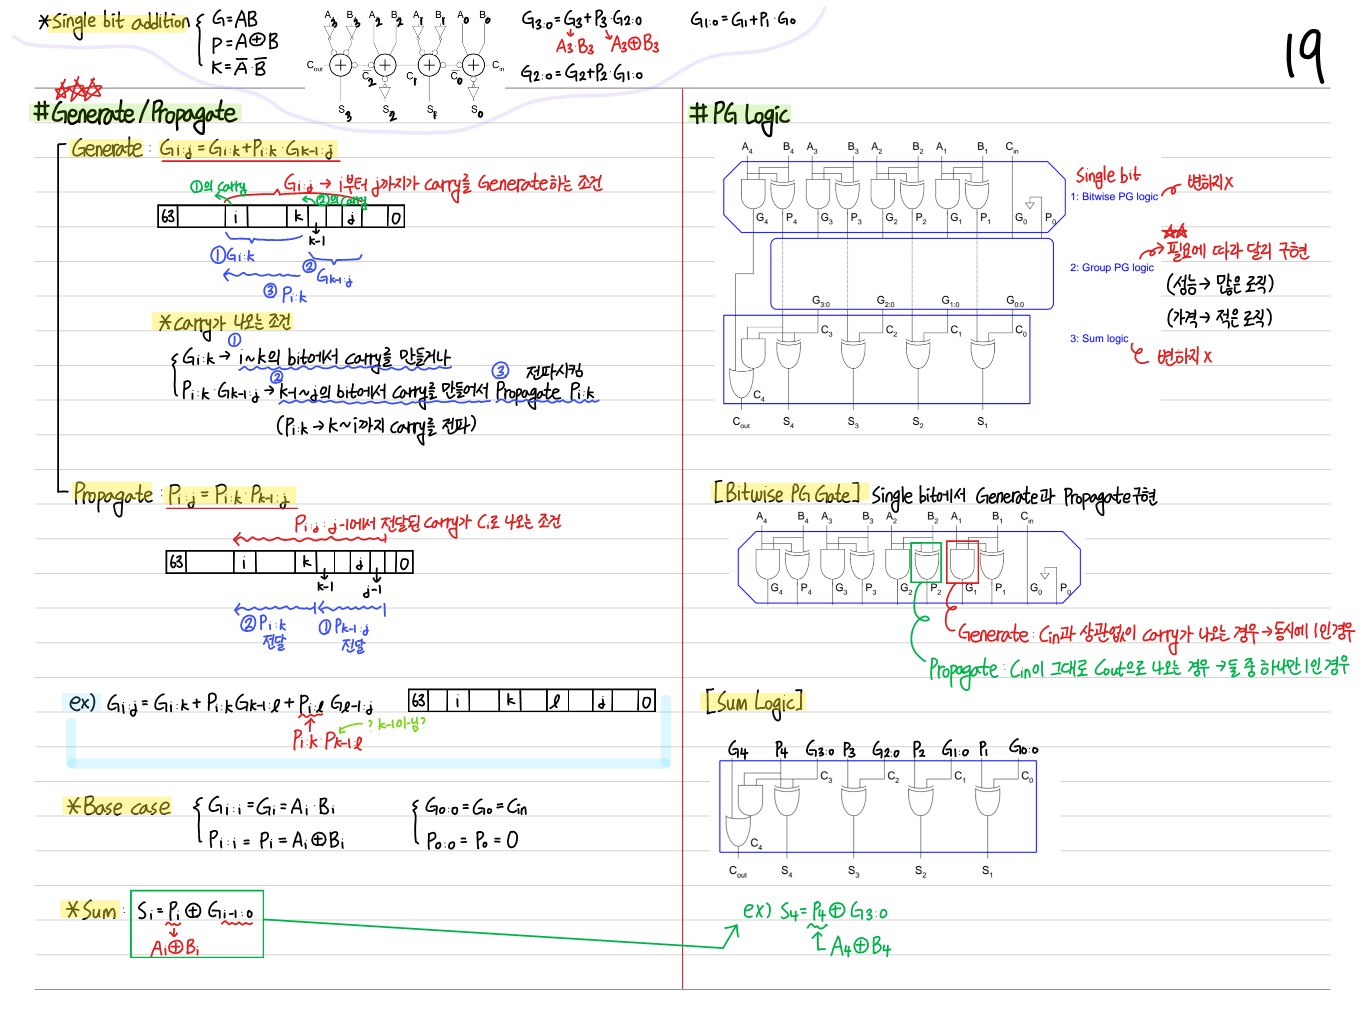 *Single bit addition { G=AB
P=A⊕B
K=A̅·B̅
A3 B3 A2 B2 A1 B1 A0 B0
Cout C̅2 C1 C̅0 Cin
S3 S2 S1 S0
G3:0=G3+P3·G2:0
A3·B3 A3⊕B3
G2:0=G2+P2·G1:0
G1:0=G1+P1·G0
19
#Generate/Propagate
Generate : Gi:j=Gi:k+Pi:k·Gk-1:j
Gi:j → i부터 j까지가 carry를 Generate하는 조건
①의 carry
②의 carry
63 i k j 0
k-1
①Gi:k
② Gk-1:j
③ Pi:k
*Carry가 나오는 조건
①
Gi:k → i~k의 bit에서 carry를 만들거나
② ③ 전파시킴
Pi:k·Gk-1:j → k-1~j의 bit에서 carry를 만들어서 Propagate Pi:k
(Pi:k → k~i까지 carry를 전파)
Propagate : Pi:j=Pi:k·Pk-1:j
Pi:j : j-1에서 전달된 carry가 Ci로 나오는 조건
63 i k j 0
k-1 j-1
②Pi:k ①Pk-1:j
전달 전달
ex) Gi:j=Gi:k+Pi:kGk-1:l+Pi:lGl-1:j
63 i k l j 0
Pi:k Pk-1:l
?k-1아님?
*Base case { Gi:i=Gi=Ai·Bi
Pi:i=Pi=Ai⊕Bi
{ G0:0=G0=Cin
P0:0=P0=0
*Sum : Si=Pi⊕Gi-1:0
Ai⊕Bi
#PG Logic
A4 B4 A3 B3 A2 B2 A1 B1 Cin
G4 P4 G3 P3 G2 P2 G1 P1 G0 P0
G3:0 G2:0 G1:0 G0:0
C3 C2 C1 C0
C4
Cout S4 S3 S2 S1
Single bit
1: Bitwise PG logic
변하지 X
2: Group PG logic
필요에 따라 달리 구현
(성능→ 많은 로직)
(가격→ 적은 로직)
3: Sum logic
변하지 X
[Bitwise PG Gate] Single bit에서 Generate과 Propagate구현
A4 B4 A3 B3 A2 B2 A1 B1 Cin
G4 P4 G3 P3 G2 P2 G1 P1 G0 P0
Generate : Cin과 상관없이 carry가 나오는 경우→동시에 1인경우
Propagate : Cin이 그대로 Cout으로 나오는 경우 →둘 중 하나만 1인 경우
[Sum Logic]
G4 P4 G3:0 P3 G2:0 P2 G1:0 P1 G0:0
C3 C2 C1 C0
C4
Cout S4 S3 S2 S1
ex) S4=P4⊕G3:0
A4⊕B4